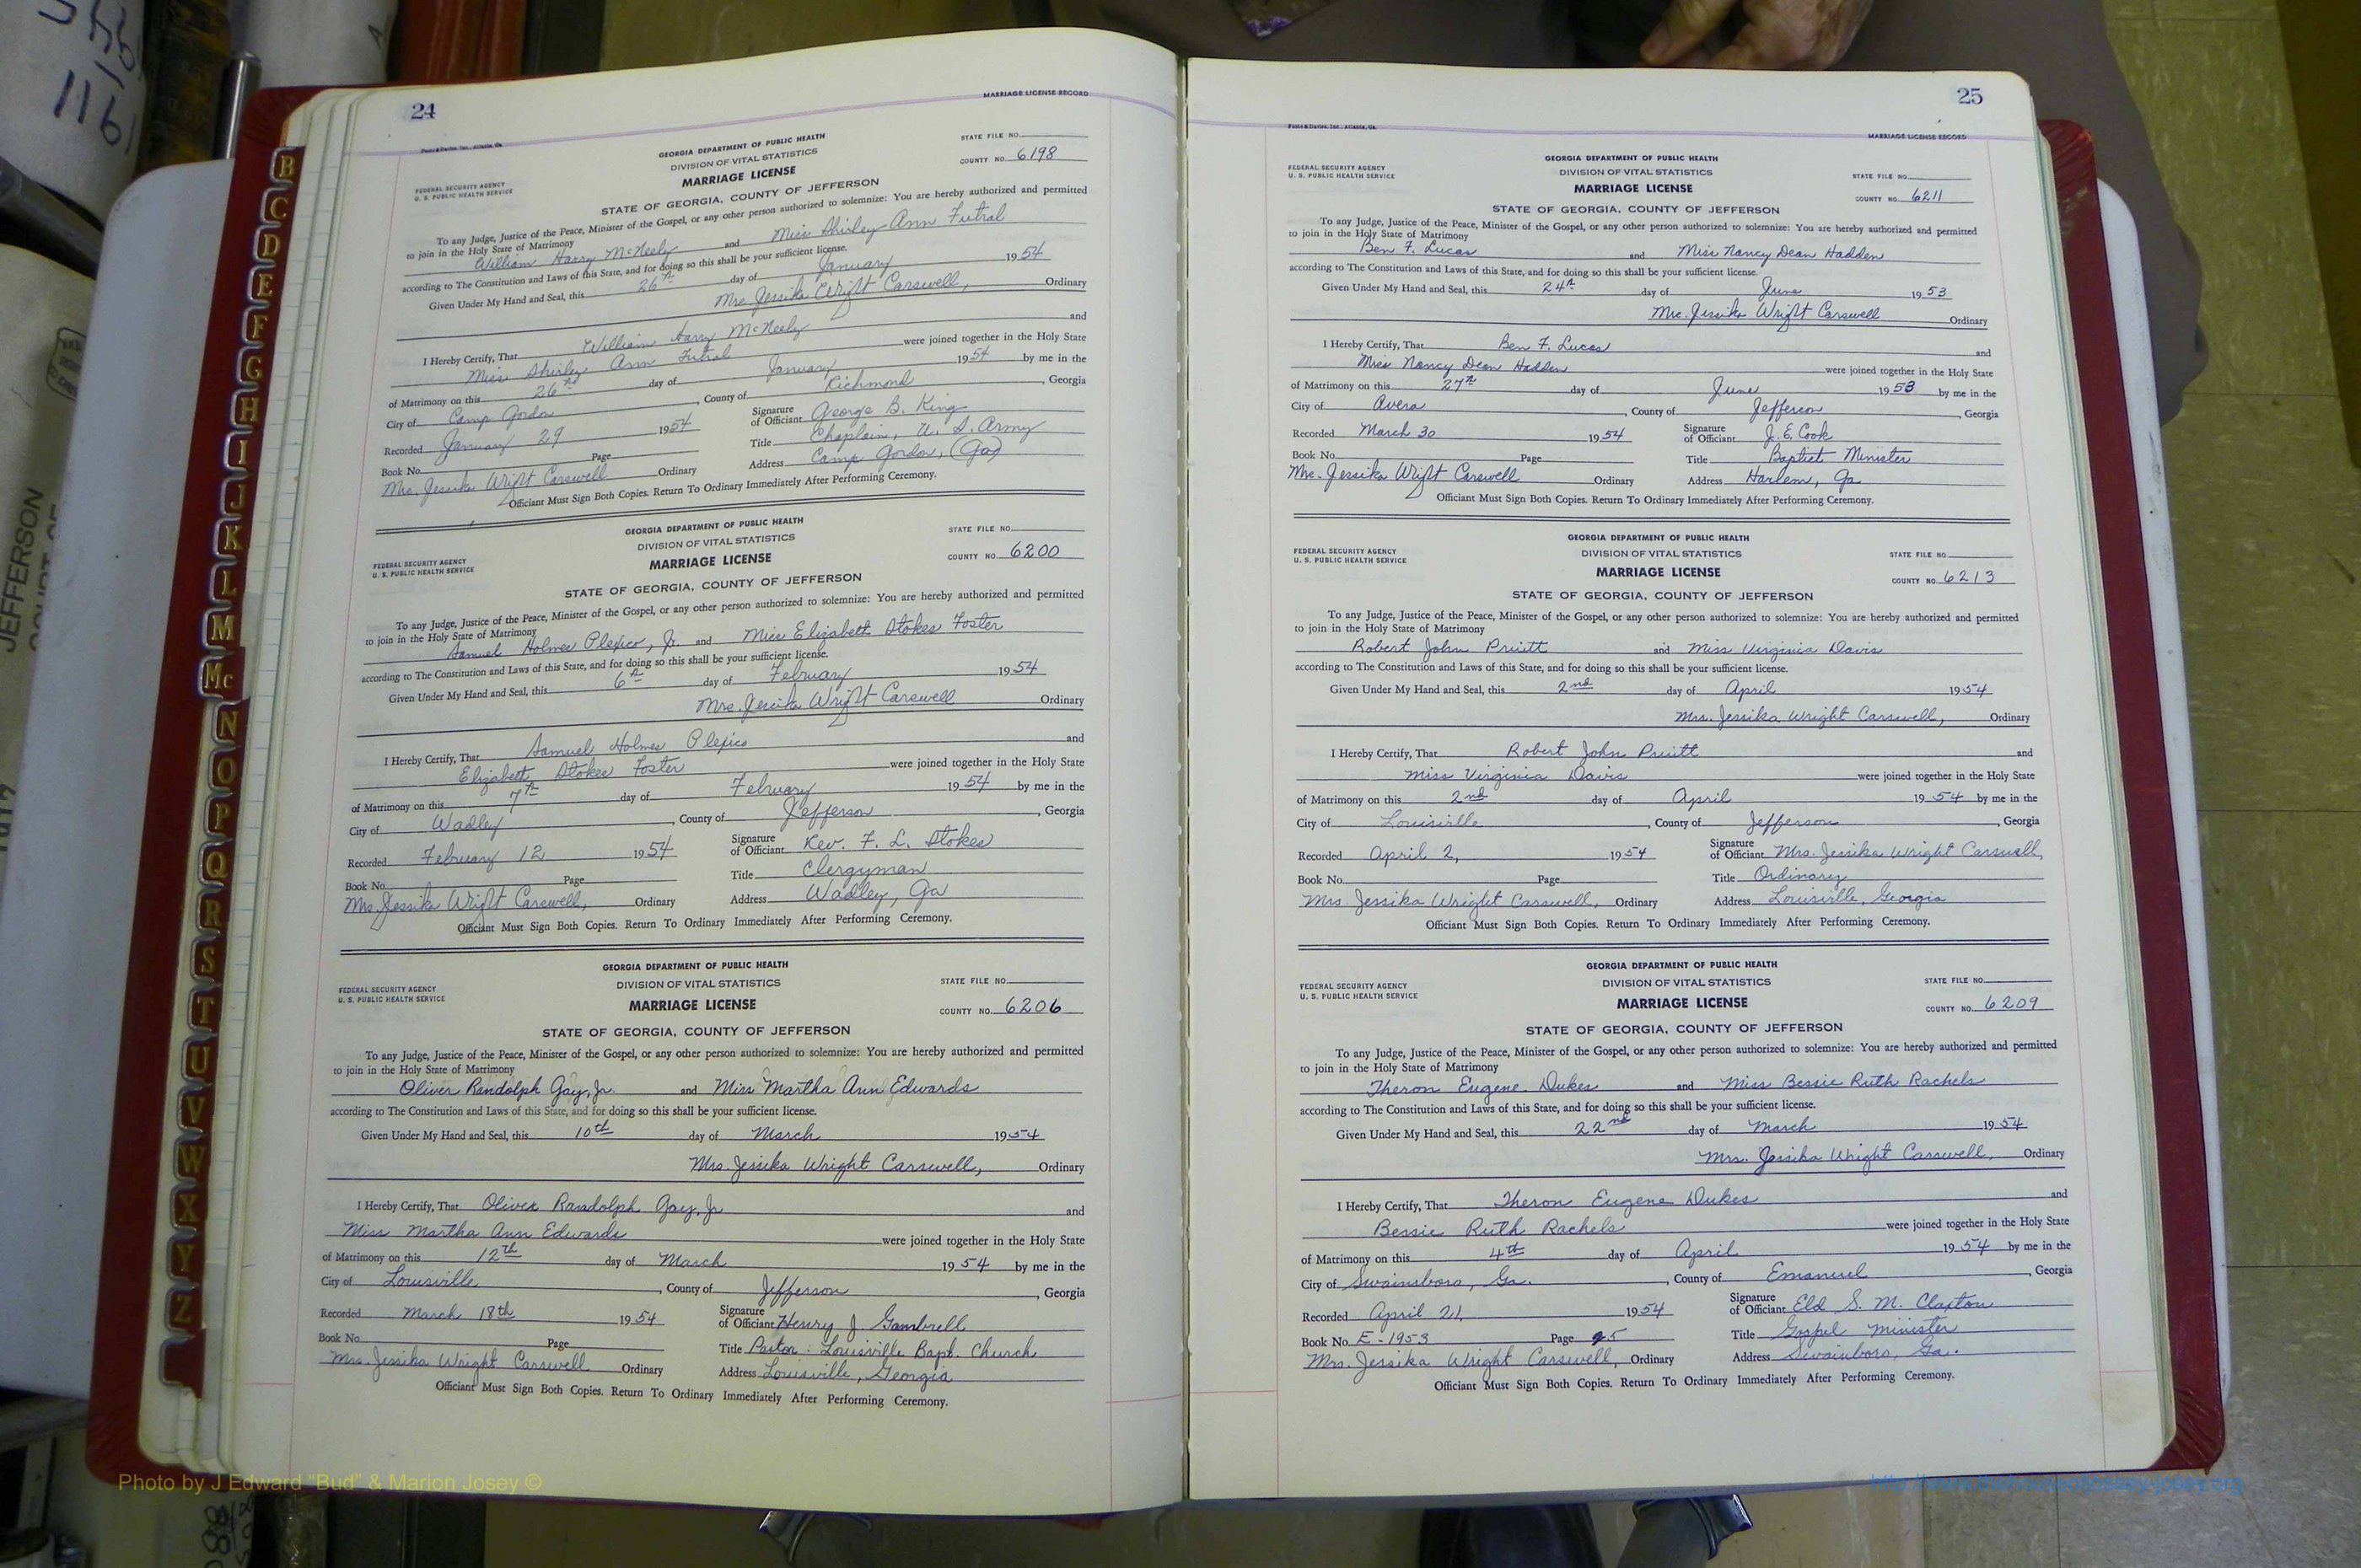 24
MARRIAGE LICENSE RECORD
Foote & Davies, Inc., Atlanta, Ga.
GEORGIA DEPARTMENT OF PUBLIC HEALTH
STATE FILE NO.
DIVISION OF VITAL STATISTICS
COUNTY NO. 6198
FEDERAL SECURITY AGENCY
U. S. PUBLIC HEALTH SERVICE
MARRIAGE LICENSE
STATE OF GEORGIA, COUNTY OF JEFFERSON
To any Judge, Justice of the Peace, Minister of the Gospel, or any other person authorized to solemnize: You are hereby authorized and permitted
to join in the Holy State of Matrimony
William Harry McNeely and Miss Shirley Ann Futral
according to The Constitution and Laws of this State, and for doing so this shall be your sufficient license.
Given Under My Hand and Seal, this 26th day of January 1954
Mrs. Jessika Wright Carswell, Ordinary
I Hereby Certify, That William Harry McNeely and
Miss Shirley Ann Futral were joined together in the Holy State
of Matrimony on this 26th day of January 1954 by me in the
City of Camp Gordon, County of Richmond, Georgia
Recorded January 29 1954 Signature of Officiant George B. King
Book No. Page Title Chaplain, U. S. Army
Mrs. Jessika Wright Carswell Ordinary Address Camp Gordon, (Ga)
Officiant Must Sign Both Copies. Return To Ordinary Immediately After Performing Ceremony.
GEORGIA DEPARTMENT OF PUBLIC HEALTH
STATE FILE NO.
DIVISION OF VITAL STATISTICS
COUNTY NO. 6200
FEDERAL SECURITY AGENCY
U. S. PUBLIC HEALTH SERVICE
MARRIAGE LICENSE
STATE OF GEORGIA, COUNTY OF JEFFERSON
To any Judge, Justice of the Peace, Minister of the Gospel, or any other person authorized to solemnize: You are hereby authorized and permitted
to join in the Holy State of Matrimony
Samuel Holmes Plexico, Jr. and Miss Elizabeth Stokes Foster
according to The Constitution and Laws of this State, and for doing so this shall be your sufficient license.
Given Under My Hand and Seal, this 6th day of February 1954
Mrs. Jessika Wright Carswell Ordinary
I Hereby Certify, That Samuel Holmes Plexico and
Elizabeth Stokes Foster were joined together in the Holy State
of Matrimony on this 7th day of February 1954 by me in the
City of Wadley, County of Jefferson, Georgia
Recorded February 12 1954 Signature of Officiant Rev. F. L. Stokes
Book No. Page Title Clergyman
Mrs. Jessika Wright Carswell, Ordinary Address Wadley, Ga
Officiant Must Sign Both Copies. Return To Ordinary Immediately After Performing Ceremony.
GEORGIA DEPARTMENT OF PUBLIC HEALTH
STATE FILE NO.
DIVISION OF VITAL STATISTICS
FEDERAL SECURITY AGENCY
U. S. PUBLIC HEALTH SERVICE
MARRIAGE LICENSE
COUNTY NO. 6206
STATE OF GEORGIA, COUNTY OF JEFFERSON
To any Judge, Justice of the Peace, Minister of the Gospel, or any other person authorized to solemnize: You are hereby authorized and permitted
to join in the Holy State of Matrimony
Oliver Randolph Gay, Jr. and Miss Martha Ann Edwards
according to The Constitution and Laws of this State, and for doing so this shall be your sufficient license.
Given Under My Hand and Seal, this 10th day of March 1954
Mrs. Jessika Wright Carswell, Ordinary
I Hereby Certify, That Oliver Randolph Gay, Jr and
Miss Martha Ann Edwards were joined together in the Holy State
of Matrimony on this 12th day of March 1954 by me in the
City of Louisville, County of Jefferson, Georgia
Recorded March 18th 1954 Signature of Officiant Henry J. Gambrell
Book No. Page Title Pastor: Louisville Bapt. Church
Mrs. Jessika Wright Carswell Ordinary Address Louisville, Georgia
Officiant Must Sign Both Copies. Return To Ordinary Immediately After Performing Ceremony.
25
Foote & Davies, Inc., Atlanta, Ga.
MARRIAGE LICENSE RECORD
GEORGIA DEPARTMENT OF PUBLIC HEALTH
FEDERAL SECURITY AGENCY
U. S. PUBLIC HEALTH SERVICE
DIVISION OF VITAL STATISTICS
STATE FILE NO.
MARRIAGE LICENSE
COUNTY NO. 6211
STATE OF GEORGIA, COUNTY OF JEFFERSON
To any Judge, Justice of the Peace, Minister of the Gospel, or any other person authorized to solemnize: You are hereby authorized and permitted
to join in the Holy State of Matrimony
Ben F. Lucas and Miss Nancy Dean Hadden
according to The Constitution and Laws of this State, and for doing so this shall be your sufficient license.
Given Under My Hand and Seal, this 24th day of June 1953
Mrs. Jessika Wright Carswell Ordinary
I Hereby Certify, That Ben F. Lucas and
Miss Nancy Dean Hadden were joined together in the Holy State
of Matrimony on this 27th day of June 1953 by me in the
City of Avera, County of Jefferson, Georgia
Recorded March 30 1954 Signature of Officiant J. E. Cook
Book No. Page Title Baptist Minister
Mrs. Jessika Wright Carswell Ordinary Address Harlem, Ga
Officiant Must Sign Both Copies. Return To Ordinary Immediately After Performing Ceremony.
GEORGIA DEPARTMENT OF PUBLIC HEALTH
FEDERAL SECURITY AGENCY
U. S. PUBLIC HEALTH SERVICE
DIVISION OF VITAL STATISTICS
STATE FILE NO.
MARRIAGE LICENSE
COUNTY NO. 6213
STATE OF GEORGIA, COUNTY OF JEFFERSON
To any Judge, Justice of the Peace, Minister of the Gospel, or any other person authorized to solemnize: You are hereby authorized and permitted
to join in the Holy State of Matrimony
Robert John Pruitt and Miss Virginia Davis
according to The Constitution and Laws of this State, and for doing so this shall be your sufficient license.
Given Under My Hand and Seal, this 2nd day of April 1954
Mrs. Jessika Wright Carswell, Ordinary
I Hereby Certify, That Robert John Pruitt and
Miss Virginia Davis were joined together in the Holy State
of Matrimony on this 2nd day of April 1954 by me in the
City of Louisville, County of Jefferson, Georgia
Recorded April 2, 1954 Signature of Officiant Mrs. Jessika Wright Carswell,
Book No. Page Title Ordinary
Mrs Jessika Wright Carswell, Ordinary Address Louisville, Georgia
Officiant Must Sign Both Copies. Return To Ordinary Immediately After Performing Ceremony.
GEORGIA DEPARTMENT OF PUBLIC HEALTH
FEDERAL SECURITY AGENCY
U. S. PUBLIC HEALTH SERVICE
DIVISION OF VITAL STATISTICS
STATE FILE NO.
MARRIAGE LICENSE
COUNTY NO. 6209
STATE OF GEORGIA, COUNTY OF JEFFERSON
To any Judge, Justice of the Peace, Minister of the Gospel, or any other person authorized to solemnize: You are hereby authorized and permitted
to join in the Holy State of Matrimony
Theron Eugene Dukes and Miss Bessie Ruth Rachels
according to The Constitution and Laws of this State, and for doing so this shall be your sufficient license.
Given Under My Hand and Seal, this 22nd day of March 1954
Mrs. Jessika Wright Carswell, Ordinary
I Hereby Certify, That Theron Eugene Dukes and
Bessie Ruth Rachels were joined together in the Holy State
of Matrimony on this 4th day of April 1954 by me in the
City of Swainsboro, Ga., County of Emanuel, Georgia
Recorded April 21, 1954 Signature of Officiant Eld S. M. Claxton
Book No. E-1953 Page 25 Title Gospel Minister
Mrs. Jessika Wright Carswell, Ordinary Address Swainsboro, Ga.
Officiant Must Sign Both Copies. Return To Ordinary Immediately After Performing Ceremony.
B
C
D
E
F
G
H
I
J
K
L
M
Mc
N
O
P
Q
R
S
T
U
V
W
X
Y
Z
JEFFERSON
Photo by J Edward “Bud” & Marion Josey ©